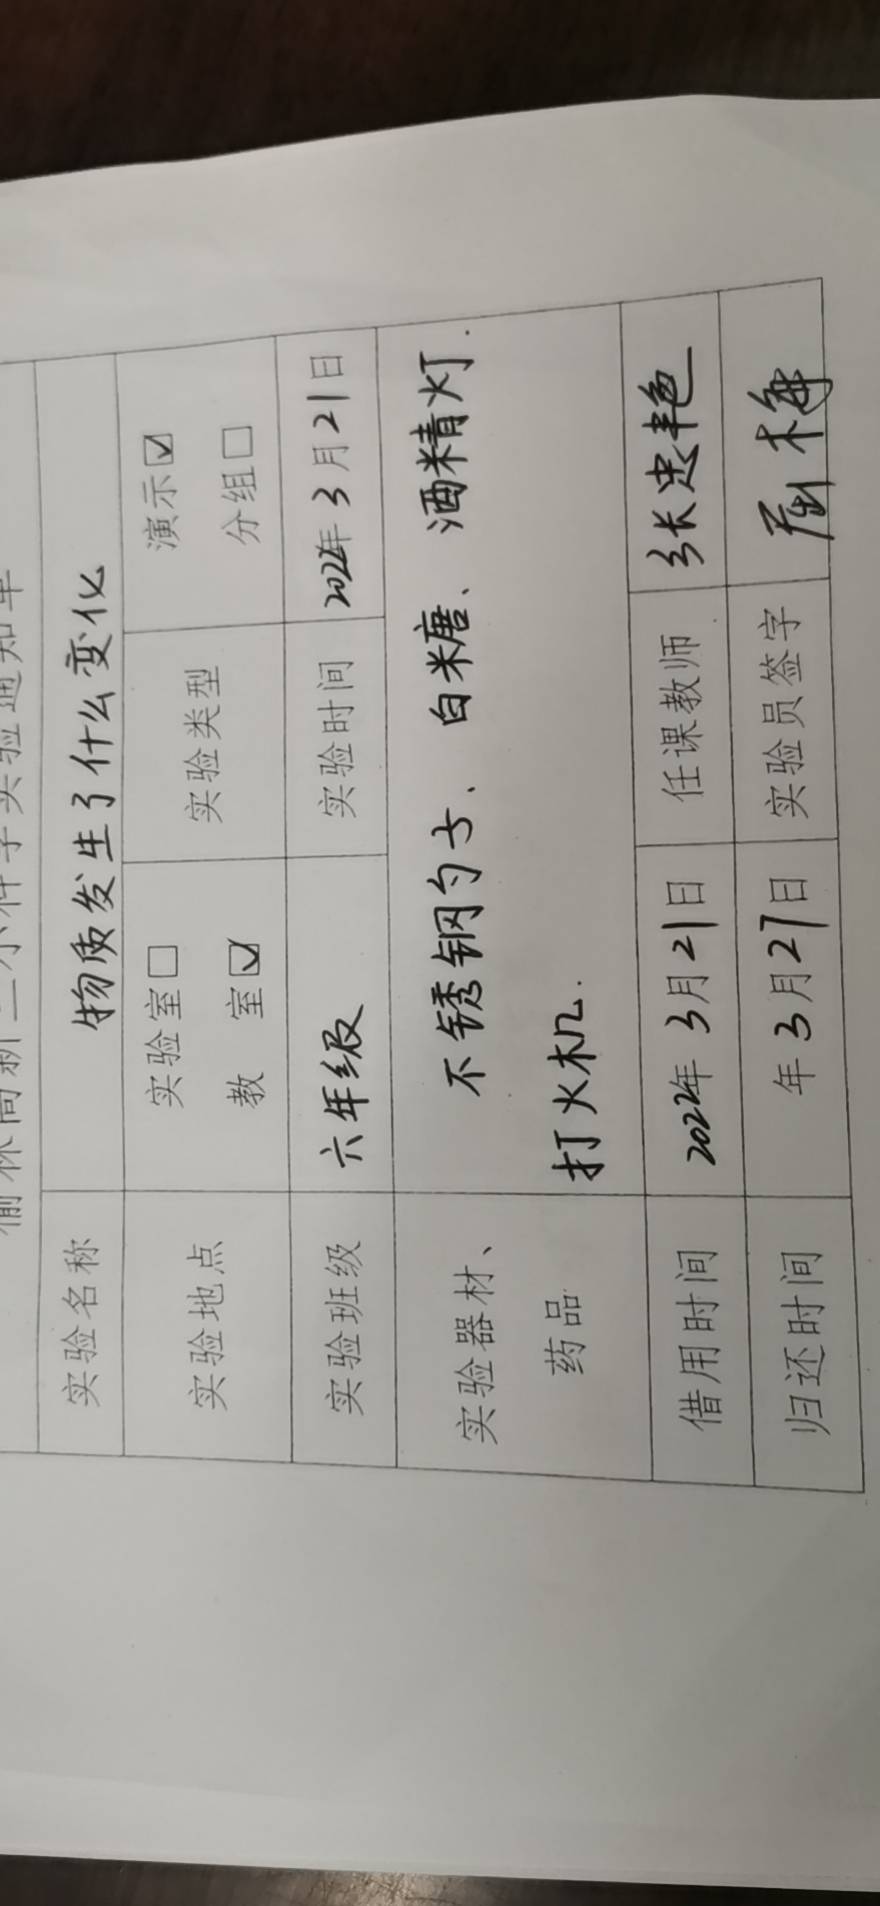 榆林高新三小科学实验通知单
实验名称 物质发生了什么变化
实验地点 实验室□ 教 室☑ 实验类型 演示☑ 分组□
实验班级 六年级 实验时间 2022年3月21日
实验器材、 不锈钢勺子、白糖、酒精灯.
药品 打火机.
借用时间 2022年3月21日 任课教师 张忠艳
归还时间 年3月27日 实验员签字 屈梅